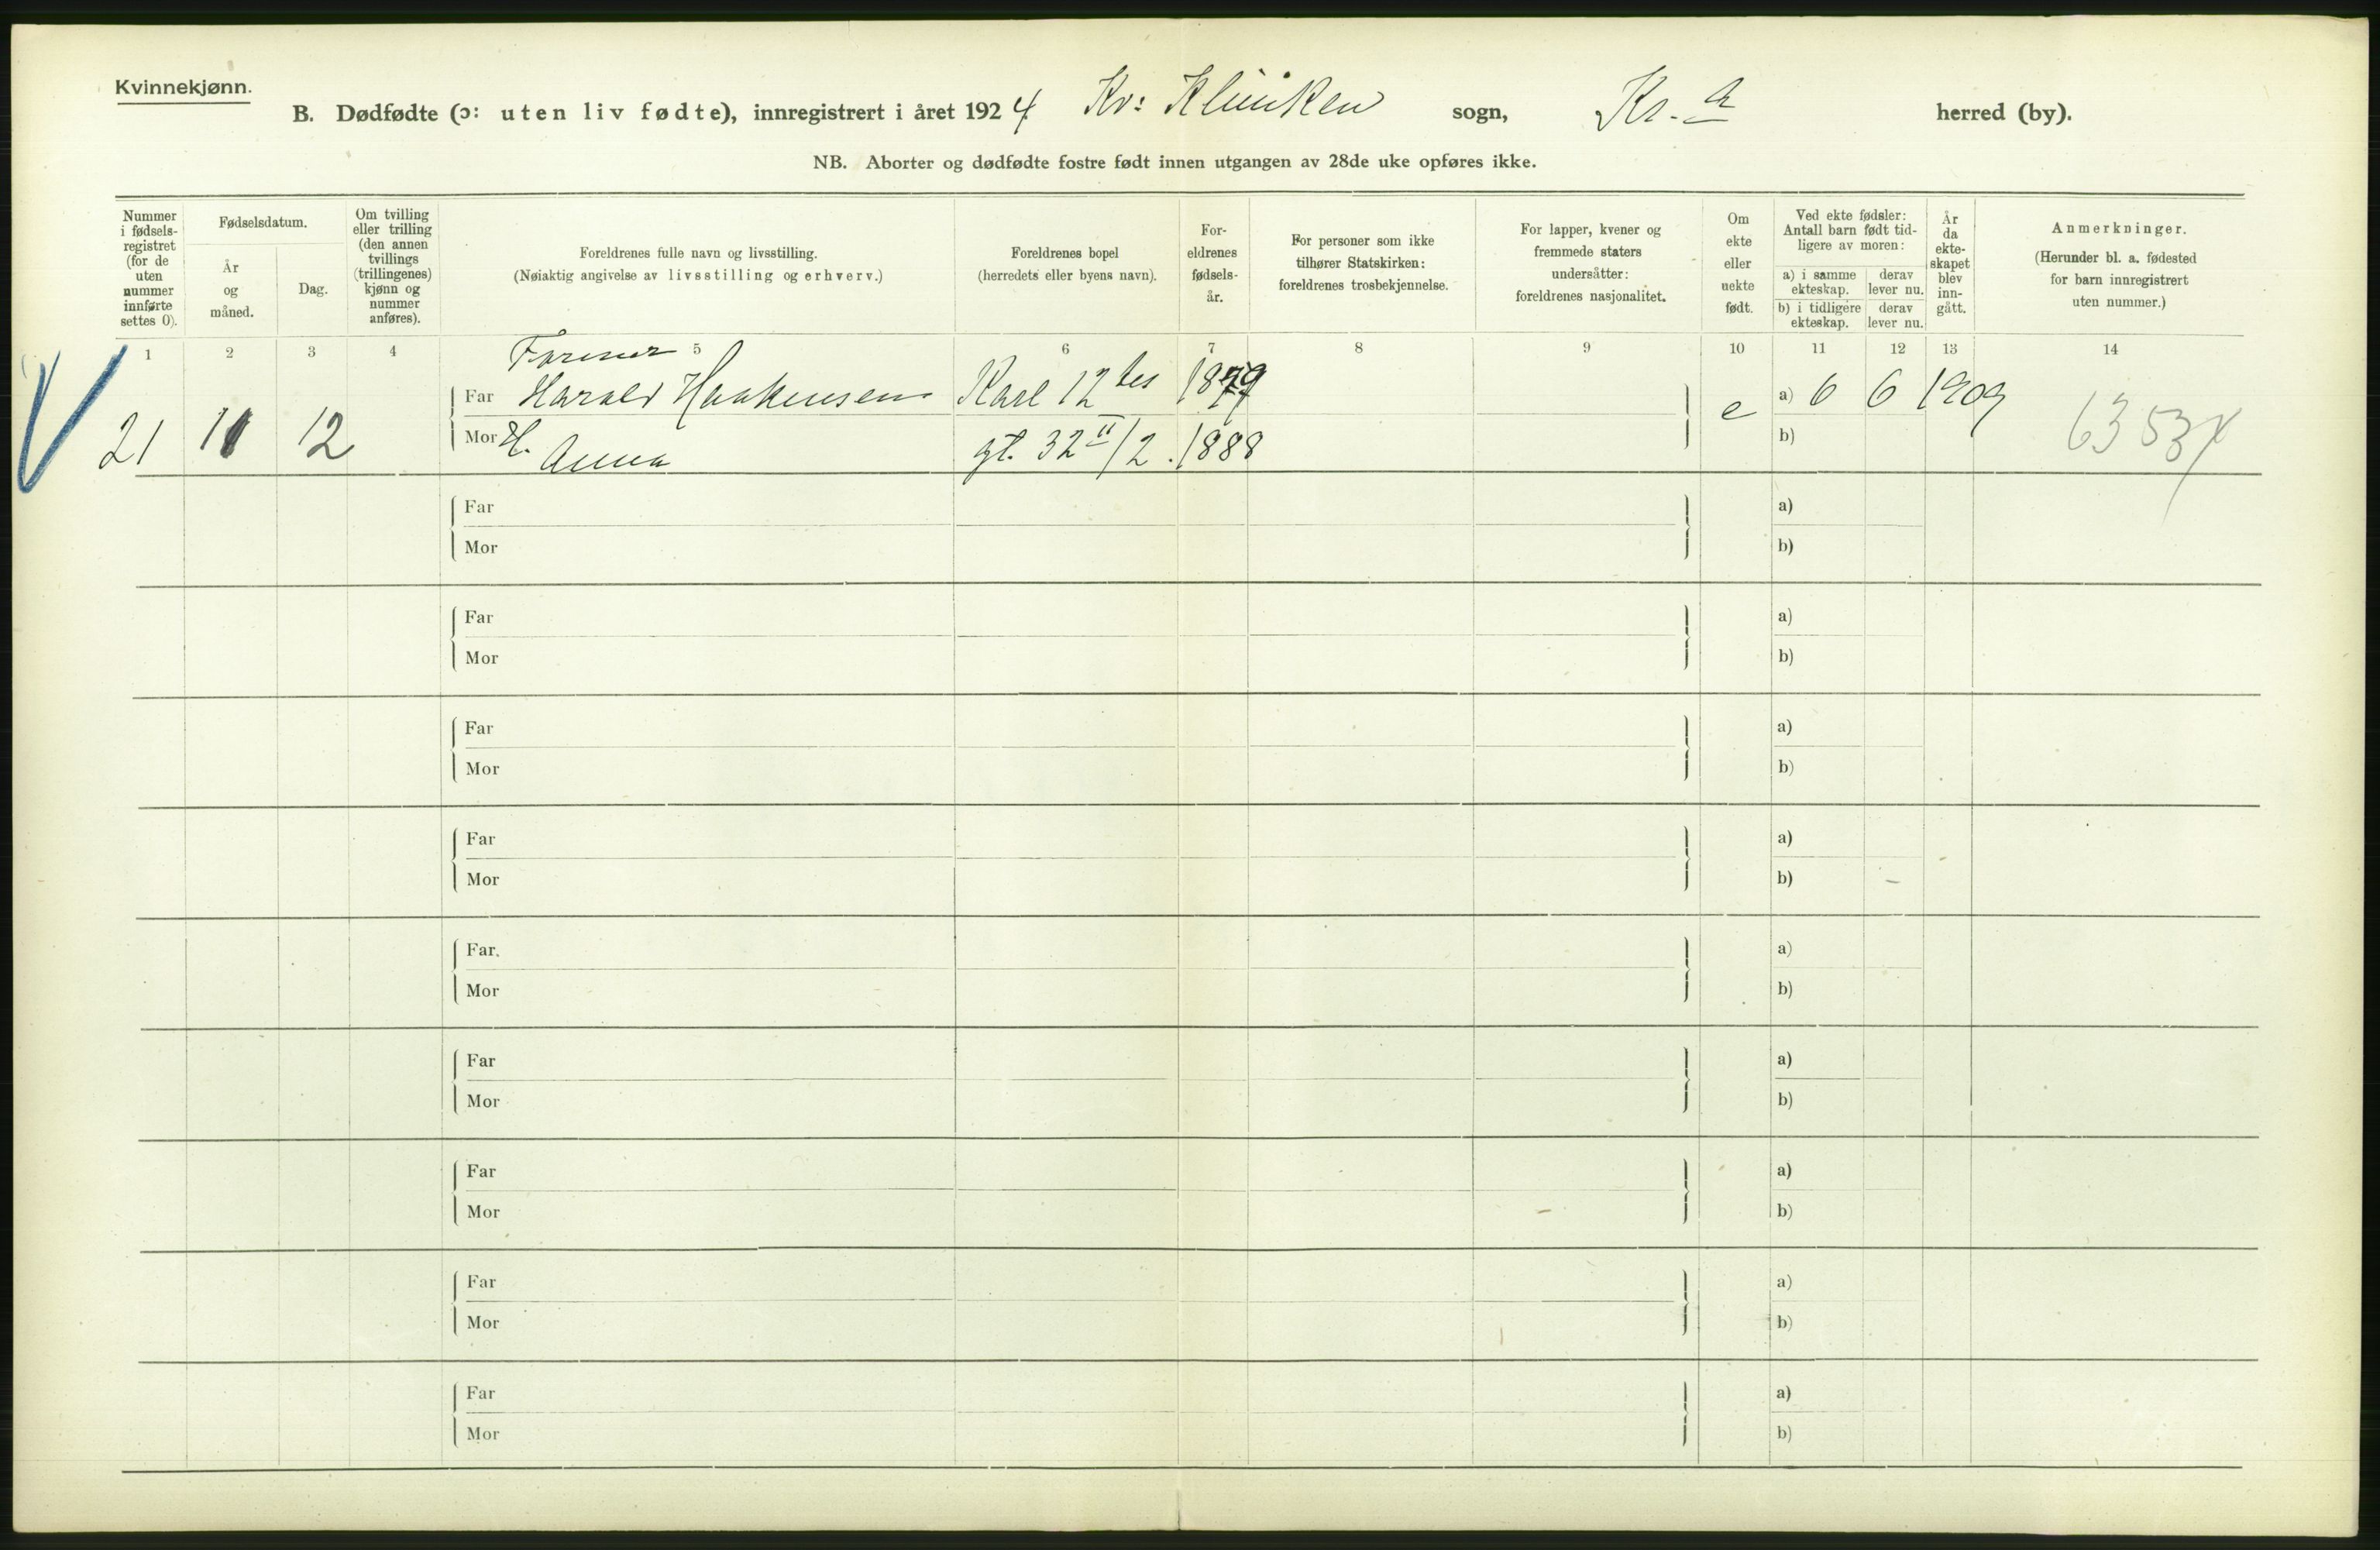 Kvinnekjønn.
B. Dødfødte (ɔ: uten liv fødte), innregistrert i året 1924 Kv: Kliniken sogn, Kr.a herred (by).
NB. Aborter og dødfødte fostre født innen utgangen av 28de uke opføres ikke.
Nummer i fødsels-registret (for de uten nummer innførte settes 0).
Fødselsdatum.
År og måned.
Dag.
Om tvilling eller trilling (den annen tvillings (trillingenes) kjønn og nummer anføres).
Foreldrenes fulle navn og livsstilling.
(Nøiaktig angivelse av livsstilling og erhverv.)
Foreldrenes bopel
(herredets eller byens navn).
For-eldrenes fødsels-år.
For personer som ikke tilhører Statskirken: foreldrenes trosbekjennelse.
For lapper, kvener og fremmede staters undersåtter: foreldrenes nasjonalitet.
Om ekte eller uekte født.
Ved ekte fødsler: Antall barn født tid-ligere av moren:
a) i samme ekteskap.
derav lever nu.
b) i tidligere ekteskap.
derav lever nu.
År da ekte-skapet blev inn-gått.
Anmerkninger.
(Herunder bl. a. fødested for barn innregistrert uten nummer.)
1 2 3 4 5 6 7 8 9 10 11 12 13 14
Far Harald Haakensen Karl 12tes 1879 a) 6 6 1909
21 11 12 Mor H. Anna gt. 32 II/2. 1888 e b)
Far a)
Mor b)
Far a)
Mor b)
Far a)
Mor b)
Far a)
Mor b)
Far. a)
Mor b)
Far a)
Mor b)
Far a)
Mor b)
Far a)
Mor b)
Far a)
Mor b)